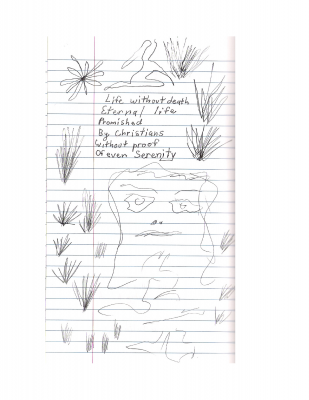 Life without death
Eternal life
Promished
By Christians
without proof
Of even Serenity